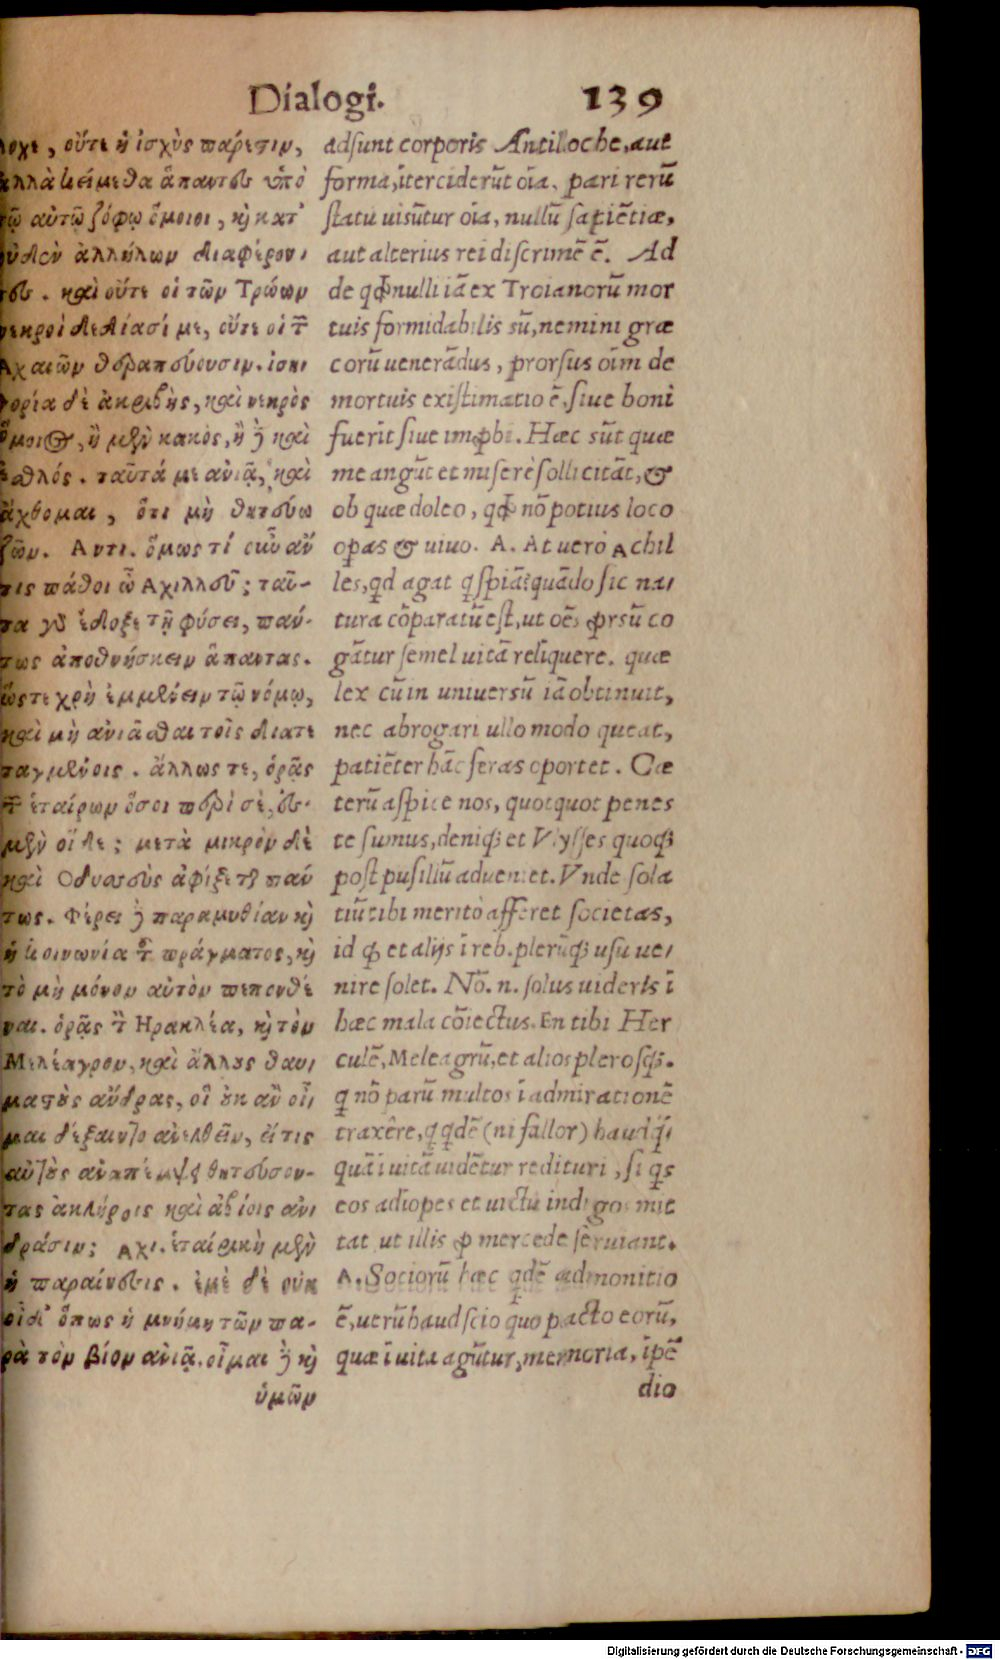 Dialogi. 139
λοχε, οὔτε ἡ ἰσχὺς πάρεστιν,
ἀλλὰ κείμεθα ἅπαντες ὑπὸ
τῷ αὐτῷ ζόφῳ ὅμοιοι, κỳ κατ'
οὐδὲν ἀλλήλων διαφέρον,
τες. καὶ οὔτε οἱ τῶν Τρώων
νεκροὶ δεδίασί με, οὔτε οἱ τῶν
Αχαιῶν θεραπεύουσιν. ἰση,
γορία δὲ ἀκριβὴς, καὶ νεκρὸς
ὅμοιος, ἢ μὲν κακὸς, ἢ δὲ καὶ
ἐσθλός. ταῦτά με ἀνιᾷ, καὶ
ἄχθομαι, ὅτι μὴ θητεύω
ζῶν. Αντι. ὅμως τί οὖν ἄν
τις πάθοι ὦ Αχιλλεῦ; ταῦ-
τα γὰρ ἔδοξε τῇ φύσει, πάν-
τως ἀποθνήσκειν ἅπαντας.
ὥστε χρὴ ἐμμένειν τῷ νόμῳ,
καὶ μὴ ἀνιᾶσθαι τοῖς διατε
ταγμένοις. ἄλλως τε, ὁρᾷς
τῶν ἑταίρων ὅσοι περὶ σὲ, ἐσ-
μὲν οἵδε; μετὰ μικρὸν δὲ
καὶ Οδυσσεὺς ἀφίξεται πάν
τως. Φέρει δὲ παραμυθίαν κỳ
ἡ κοινωνία τοῦ πράγματος, κỳ
τὸ μὴ μόνον αὐτὸν πεπονθέ
ναι. ὁρᾷς τὸν Ηρακλέα, κỳ τὸν
Μελέαγρον, καὶ ἄλλους θαυ,
μαστοὺς ἄνδρας, οἳ οὐκ ἂν οἶ,
μαι δέξαιντο ἀνελθεῖν, εἴ τις
αὐτοὺς ἀναπέμψειε θητεύσον-
τας ἀκλήροις καὶ ἀβίοις ἀν,
δράσιν; Αχι. ἑταιρικὴ μὲν
ἡ παραίνεσις. ἐμὲ δὲ οὐκ
οἶδ' ὅπως ἡ μνήμη τῶν πα-
ρὰ τὸν βίον ἀνιᾷ. οἶμαι δὲ κỳ
ὑμῶν
adsunt corporis Antiloche, aut
forma, iterciderũt oĩa, pari rerũ
statu uisũtur oĩa, nullũ sapiẽtiæ,
aut alterius rei discrimẽ ẽ. Ad
de qđ nulli iã ex Troianorũ mor
tuis formidabilis sũ, nemini græ
corũ uenerãdus, prorsus oĩm de
mortuis existimatio ẽ, siue boni
fuerĩt siue imꝓbi. Hæc sũt quæ
me angũt et miserè sollicitãt, &
ob quæ doleo, qđ nõ potius loco
oꝑas & uiuo. A. At uerò Achil
les, qd agat q̃spiã? quãdo sic na,
tura cõparatũ est, ut oẽs ꝓrsũ co
gãtur semel uitã relĩquere. quæ
lex cũ in uniuersũ iã obtinuit,
nec abrogari ullo modo queat,
patiẽter hãc feras oportet. Cæ
terũ aspice nos, quotquot penes
te sumus, deniq; et Vlysses quoq;
post pusillũ adueniet. Vnde sola
tiũ tibi meritò afferet societas,
id q; et alijs ĩ reb. plerũq; usu ue,
nire solet. Nõ. n. solus uideris ĩ
hæc mala cõiectus. En tibi Her
culẽ, Meleagrũ, et alios plerosq;.
q̃ nõ parũ multos ĩ admirationẽ
traxêre, q̃ q̃dẽ (ni fallor) haud q̃,
quã ĩ uitã uidẽtur redituri, si q̃s
eos ad ĩopes et uictu indigos mit
tat ut illis ꝓ mercede seruiant.
A. Sociorũ hæc q̃dẽ admonitio
ẽ, uerũ haud scio quo pacto eorũ,
quæ ĩ uita agũtur, memoria, ĩpẽ
dio
Digitalisierung gefördert durch die Deutsche Forschungsgemeinschaft - DFG